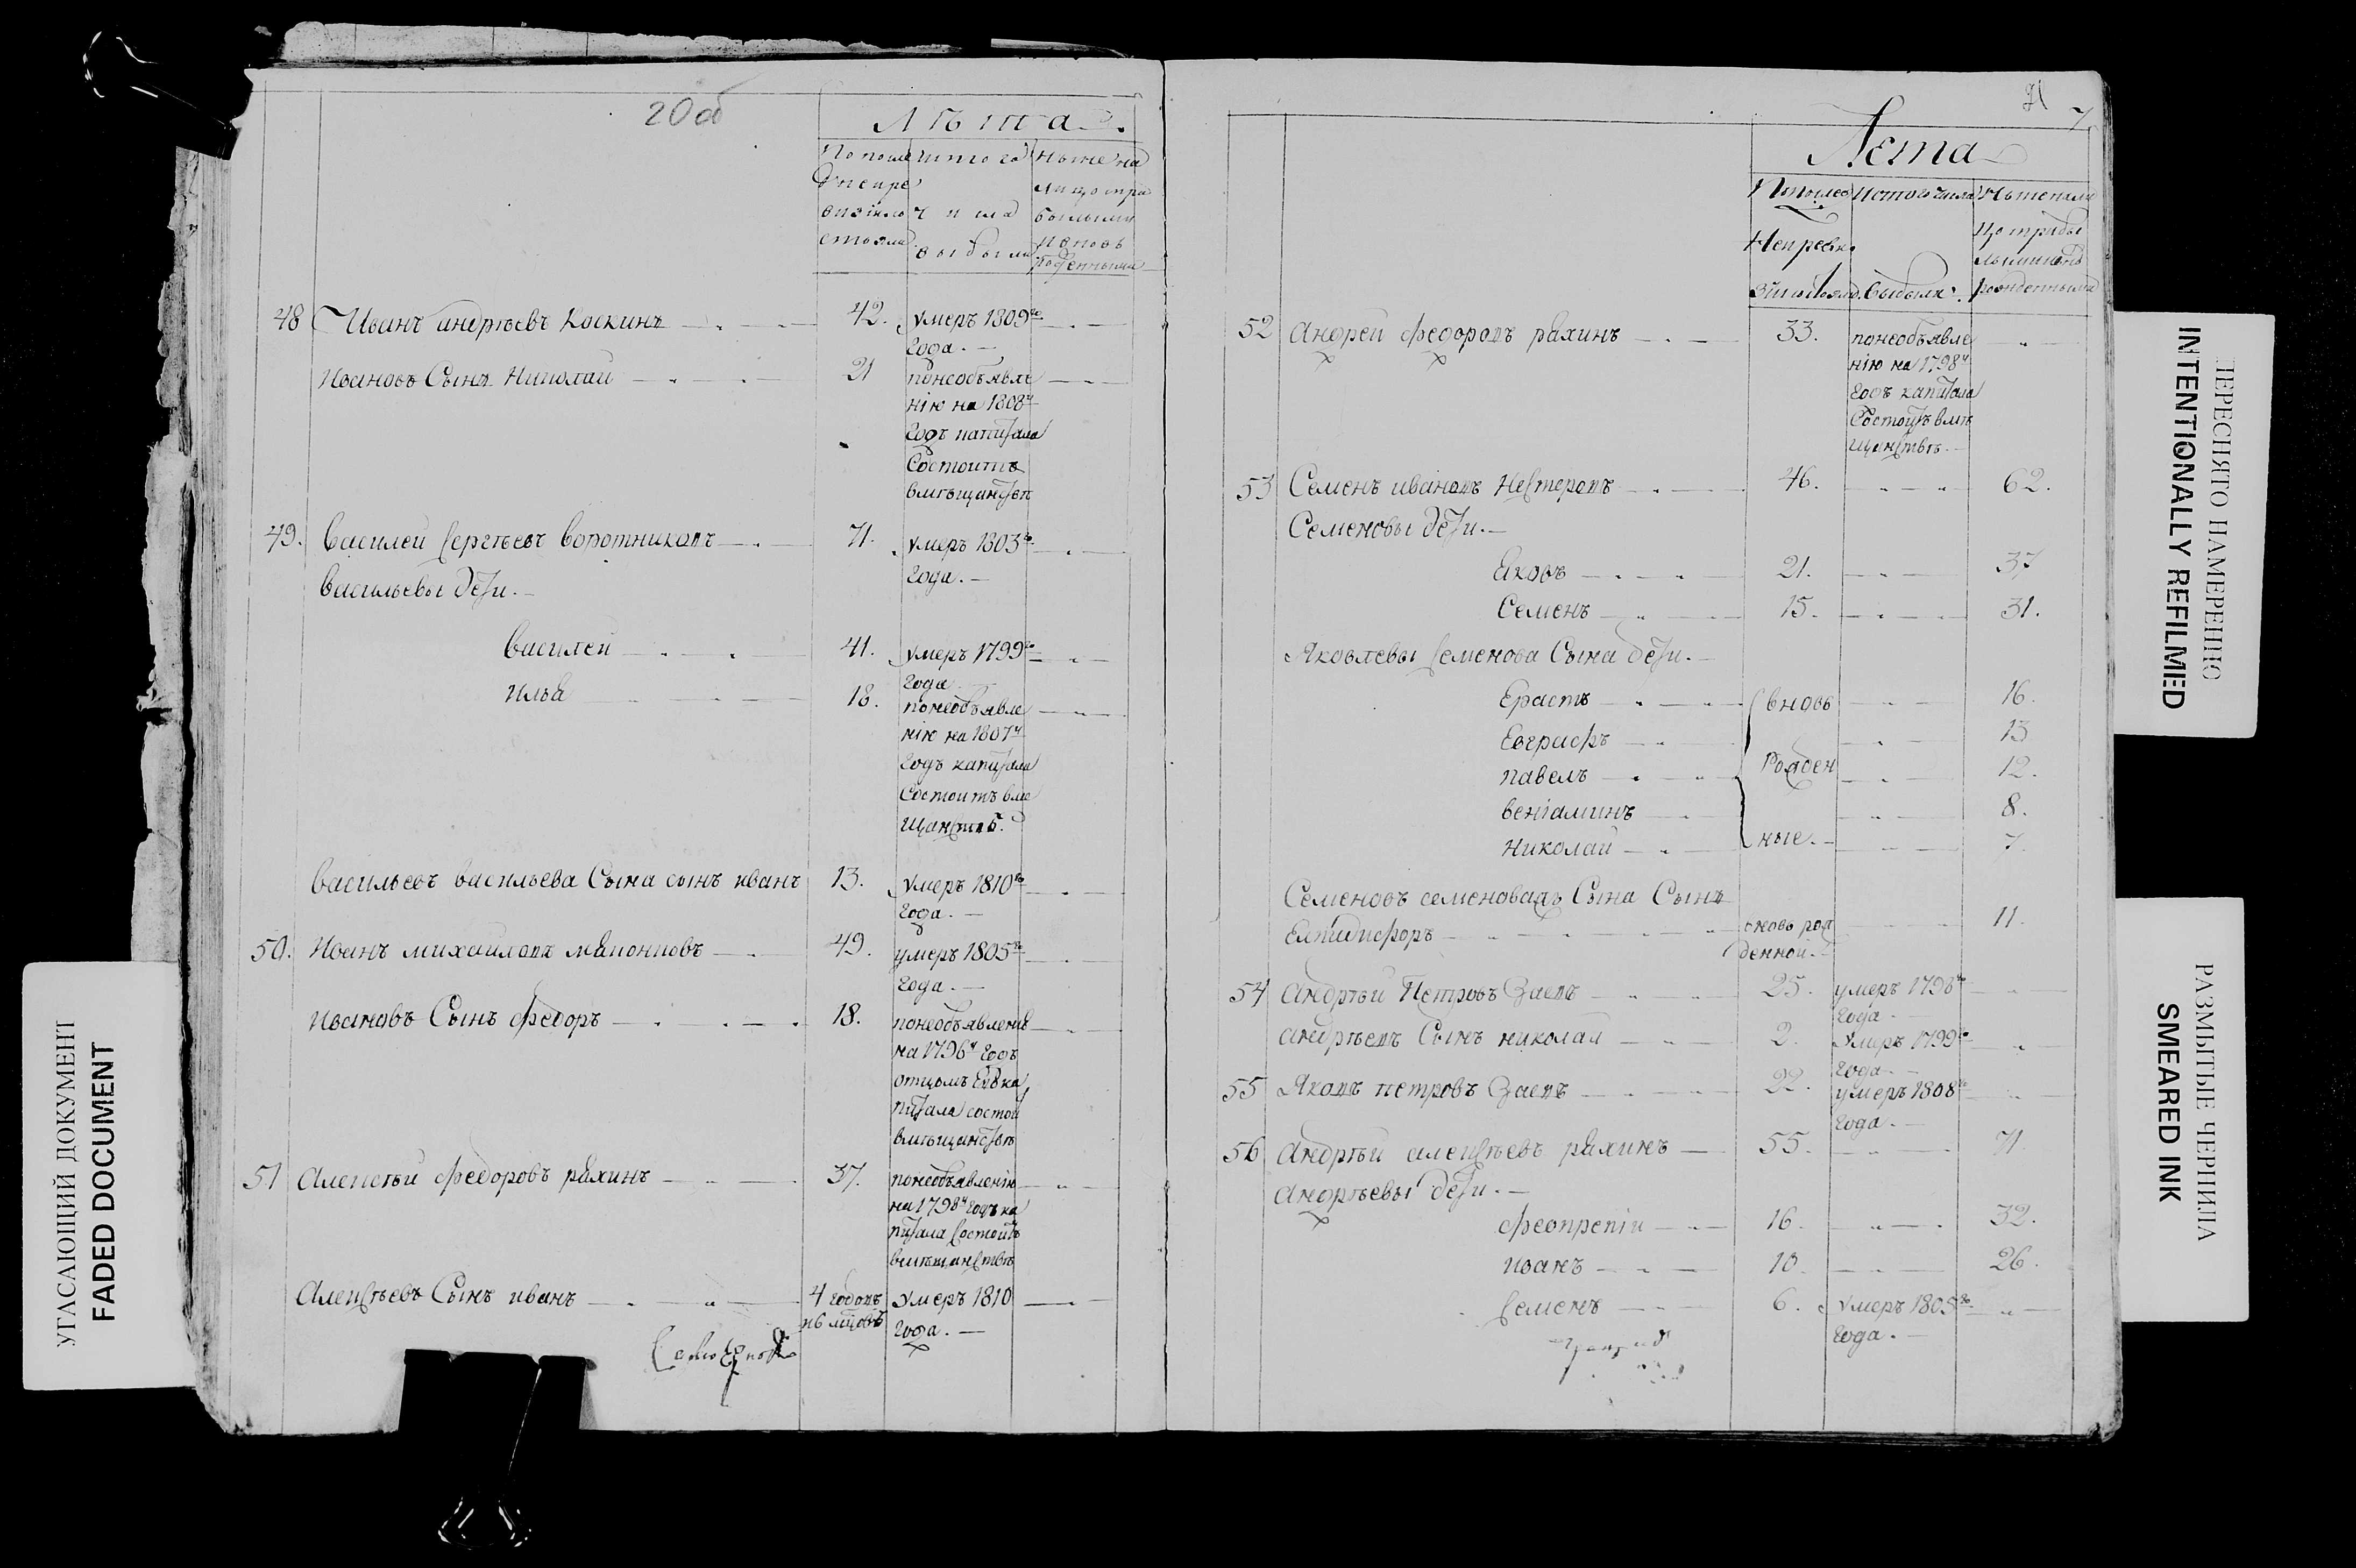 20об
Лѣта.
По послѣ
дней ре
визіи со
стояло
Изтого
числа
выбыло
Ныне на
лицо при
былыми
и новъ
рожденными
48 Иванъ андрѣевъ Коскинъ 42. умеръ 1809го
года.
Ивановъ Сынъ Николай 21 понеобъявле
нію на 1808й
годъ капитала
Состоитъ
вмѣщанствѣ
49. василей сергѣевъ воротниковъ 71. умеръ 1803го
года.
васильевы дети.
василей 41. умеръ 1799го
года
илья 18. понеобъявле
нію на 1807й
годъ капитала
Состоитъ вме
щанствѣ.
васильевъ васильева Сына сынъ иванъ 13. умеръ 1810го
года.
50. Иванъ михайловъ 49. умеръ 1805го
года.
Ивановъ Сынъ федоръ 18. понеобъявленію
на 1796й годъ
отцомъ Ево ка
питала состои
вмѣщанствѣ
51 Алексѣй федоровъ рахинъ 37. понеобъявленію
на 1798й годъ ка
питала Состоитъ
вмѣщанствѣ
Алексѣевъ Сынъ иванъ 4 годовъ умеръ 1810
и 6 мцовъ года.
21
7
Лета
Попослед
Ней реви
зіи состояло
Истого числа
Выбыло
Ныне нали
цо прибы
лыми и внов
рожденными
52 Андрей федоровъ рахинъ 33. понеобъявле
нію на 1798й
годъ капитала
Состоитъ вмѣ
щанствѣ.
53 Семенъ ивановъ Нестеровъ 46. 62.
Семеновы дети.
Яковъ 21. 37
Семенъ 15. 31.
Яковлевы семенова Сына дети.
Ерастъ вновь 16.
Евграфъ 13
павелъ Рожден 12.
веніаминъ 8.
николай ные. 7.
Семеновъ Сына Сынъ
Елпидифоръ вновь рож 11.
денной.
54 андрѣй Петровъ Заевъ 25. умеръ 1798го
года.
андрѣевъ Сынъ николай 2. умеръ 1799го
года.
55 Яковъ петровъ Заевъ 22. умеръ 1808го
года.
56 андрѣй алексѣевъ рахинъ 55. 71
андрѣевы дети.
16. 32.
иванъ 10. 26.
семенъ 6. умеръ 1805го
года.
УГАСАЮЩИЙ ДОКУМЕНТ
FADED DOCUMENT
ПЕРЕСНЯТО НАМЕРЕННО
INTENTIONALLY REFILMED
РАЗМЫТЫЕ ЧЕРНИЛА
SMEARED INK